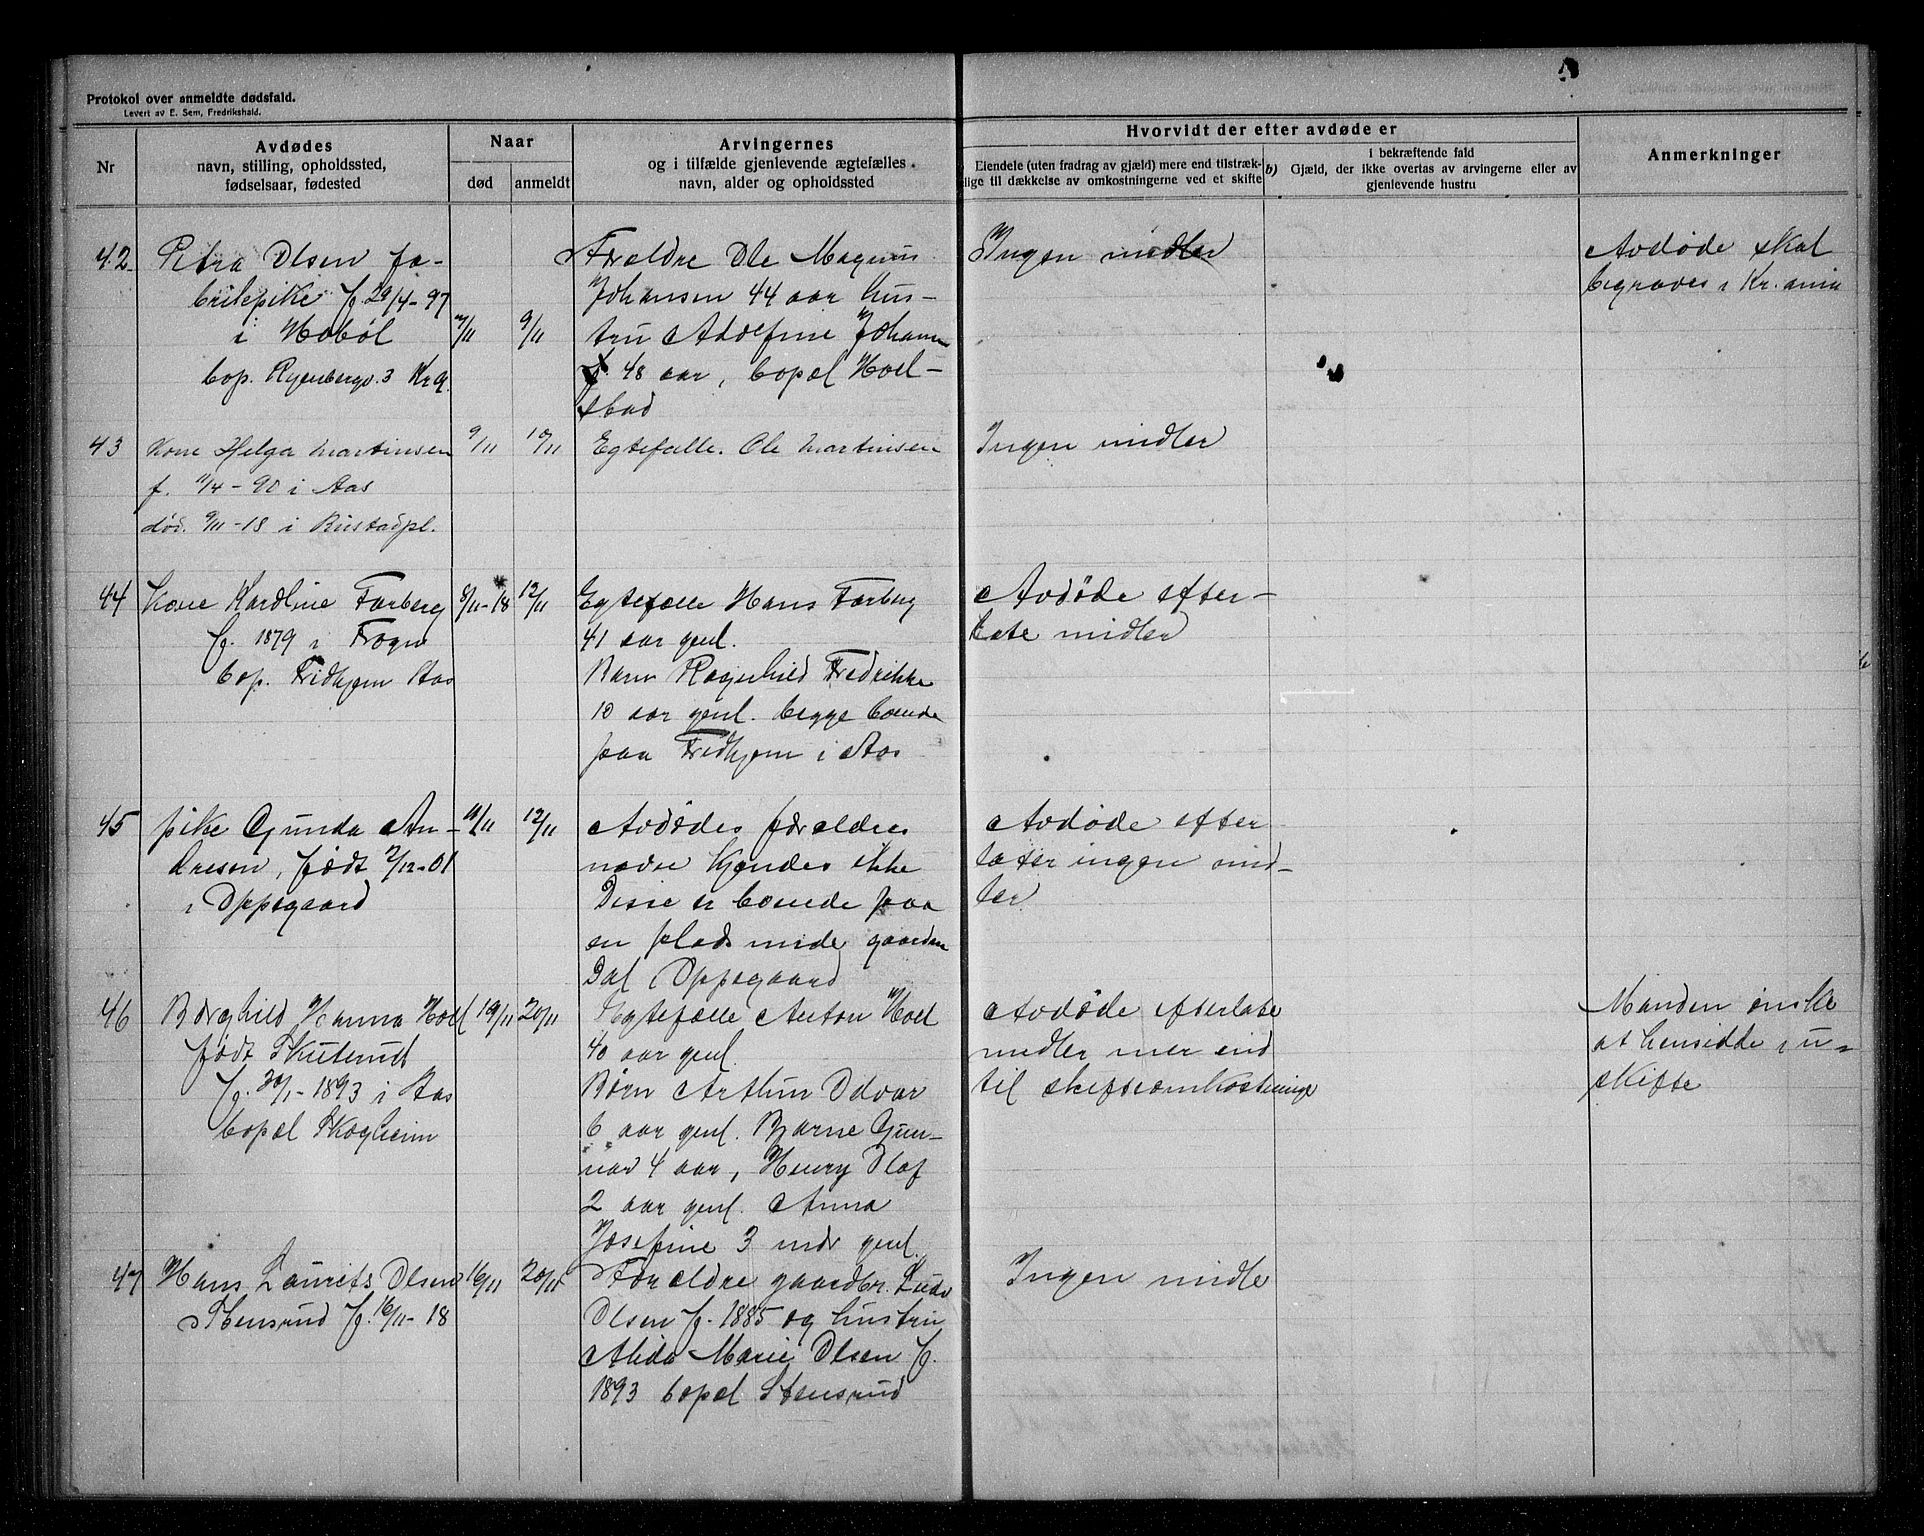 Protokol over anmeldte dødsfald.
Levert av E. Sem, Fredrikshald.
Nr
Avdødes
navn, stilling, opholdssted,
fødselsaar, fødested
Naar
død
anmeldt
Arvingernes
og i tilfælde gjenlevende ægtefælles
navn, alder og opholdssted
Hvorvidt der efter avdøde er
Eiendele (uten fradrag av gjæld) mere end tilstræk-
lige til dækkelse av omkostningerne ved et skifte
b)
i bekræftende fald
Gjæld, der ikke overtas av arvingerne eller av
gjenlevende hustru
Anmerkninger
42
Petra Olsen fa-
brikpike f. 29/4-97
i Hobøl
bop. Ryenbergv. 3 Kra.
7/11
9/11
Forældre Ole Magnus
Johansen 44 aar hus-
tru Adolfine Johansen
48 aar, bopæl Hoel-
stad
Ingen midler
Avdøde skal
begraves i Kr.ania
43
Kone Helga Martinsen
f. 11/4-90 i Aas
død. 9/11-18 i Rustadpl.
9/11
10/11
Egtefælle. Ole Martinsen
Ingen midler
44
Kone Karoline Farberg
f. 1879 i Frogn
bop. Fridhjem Aas
8/11-18
12/11
Egtefælle Hans Farberg
41 aar gml.
Barn Ragnhild Fredrikke
10 aar gml. begge boende
paa Fridhjem i Aas
Avdøde efter-
late midler
45
pike Gunda An-
dresen, født 2/12-01
i Oppegaard
10/11
12/11
Avdødes forældres
navne kjendes ikke
Disse er boende paa
en plads under gaarden
Dal i Oppegaard
Avdøde efter
later ingen mid-
ler
46
Borghild Hanna Hoel
født Skuterud
f. 30/1-1893 i Aas
bopæl Skogheim
19/11
20/11
Egtefælle Anton Hoel
40 aar gml.
Børn Arthur Odvar
6 aar gml. Bjarne Gun-
nar 4 aar, Henry Olaf
2 aar gml. Anna
Josefine 3 mdr gml.
Avdøde efterlate
midler mer end
til skifteomkostninge
Manden ønske
at hensidde i u-
skifte
47
Hans Laurits Olsen
Stensrud f. 16/11-18
16/11
20/11
Forældre gaardbr. Ludv
Olsen f. 1885 og hustru
Alida Marie Olsen f.
1893 bopæl Stensrud
Ingen midle